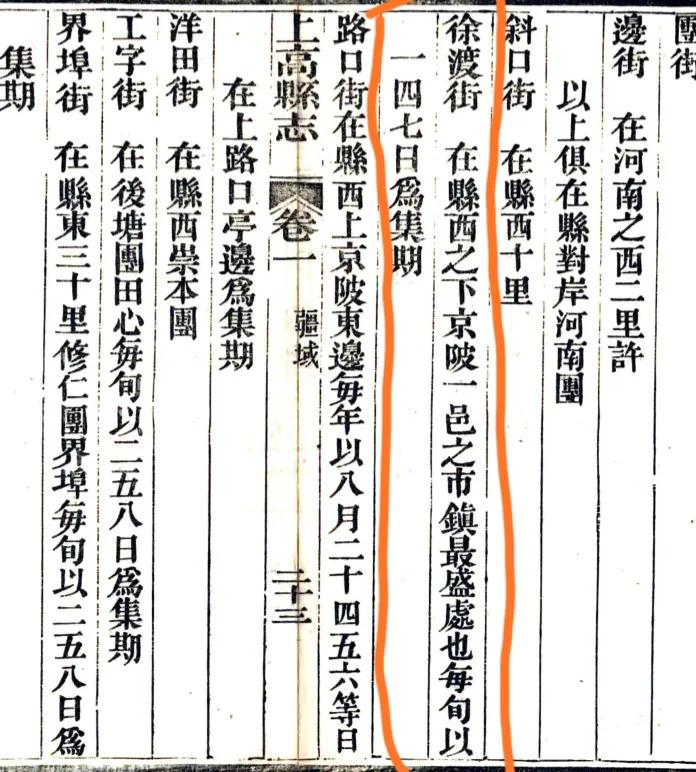 團街
邊街　在河南之西二里許
以上俱在縣對岸河南團
斜口街　在縣西十里
徐渡街　在縣西之下京陂一邑之市鎮最盛處也每旬以
一四七日爲集期
路口街在縣西上京陂東邊每年以八月二十四五六等日
上高縣志　卷一　疆域　二十三
在上路口亭邊爲集期
洋田街　在縣西崇本團
工字街　在後塘團田心每旬以二五八日爲集期
界埠街　在縣東三十里修仁團界埠每旬以二五八日爲
集期